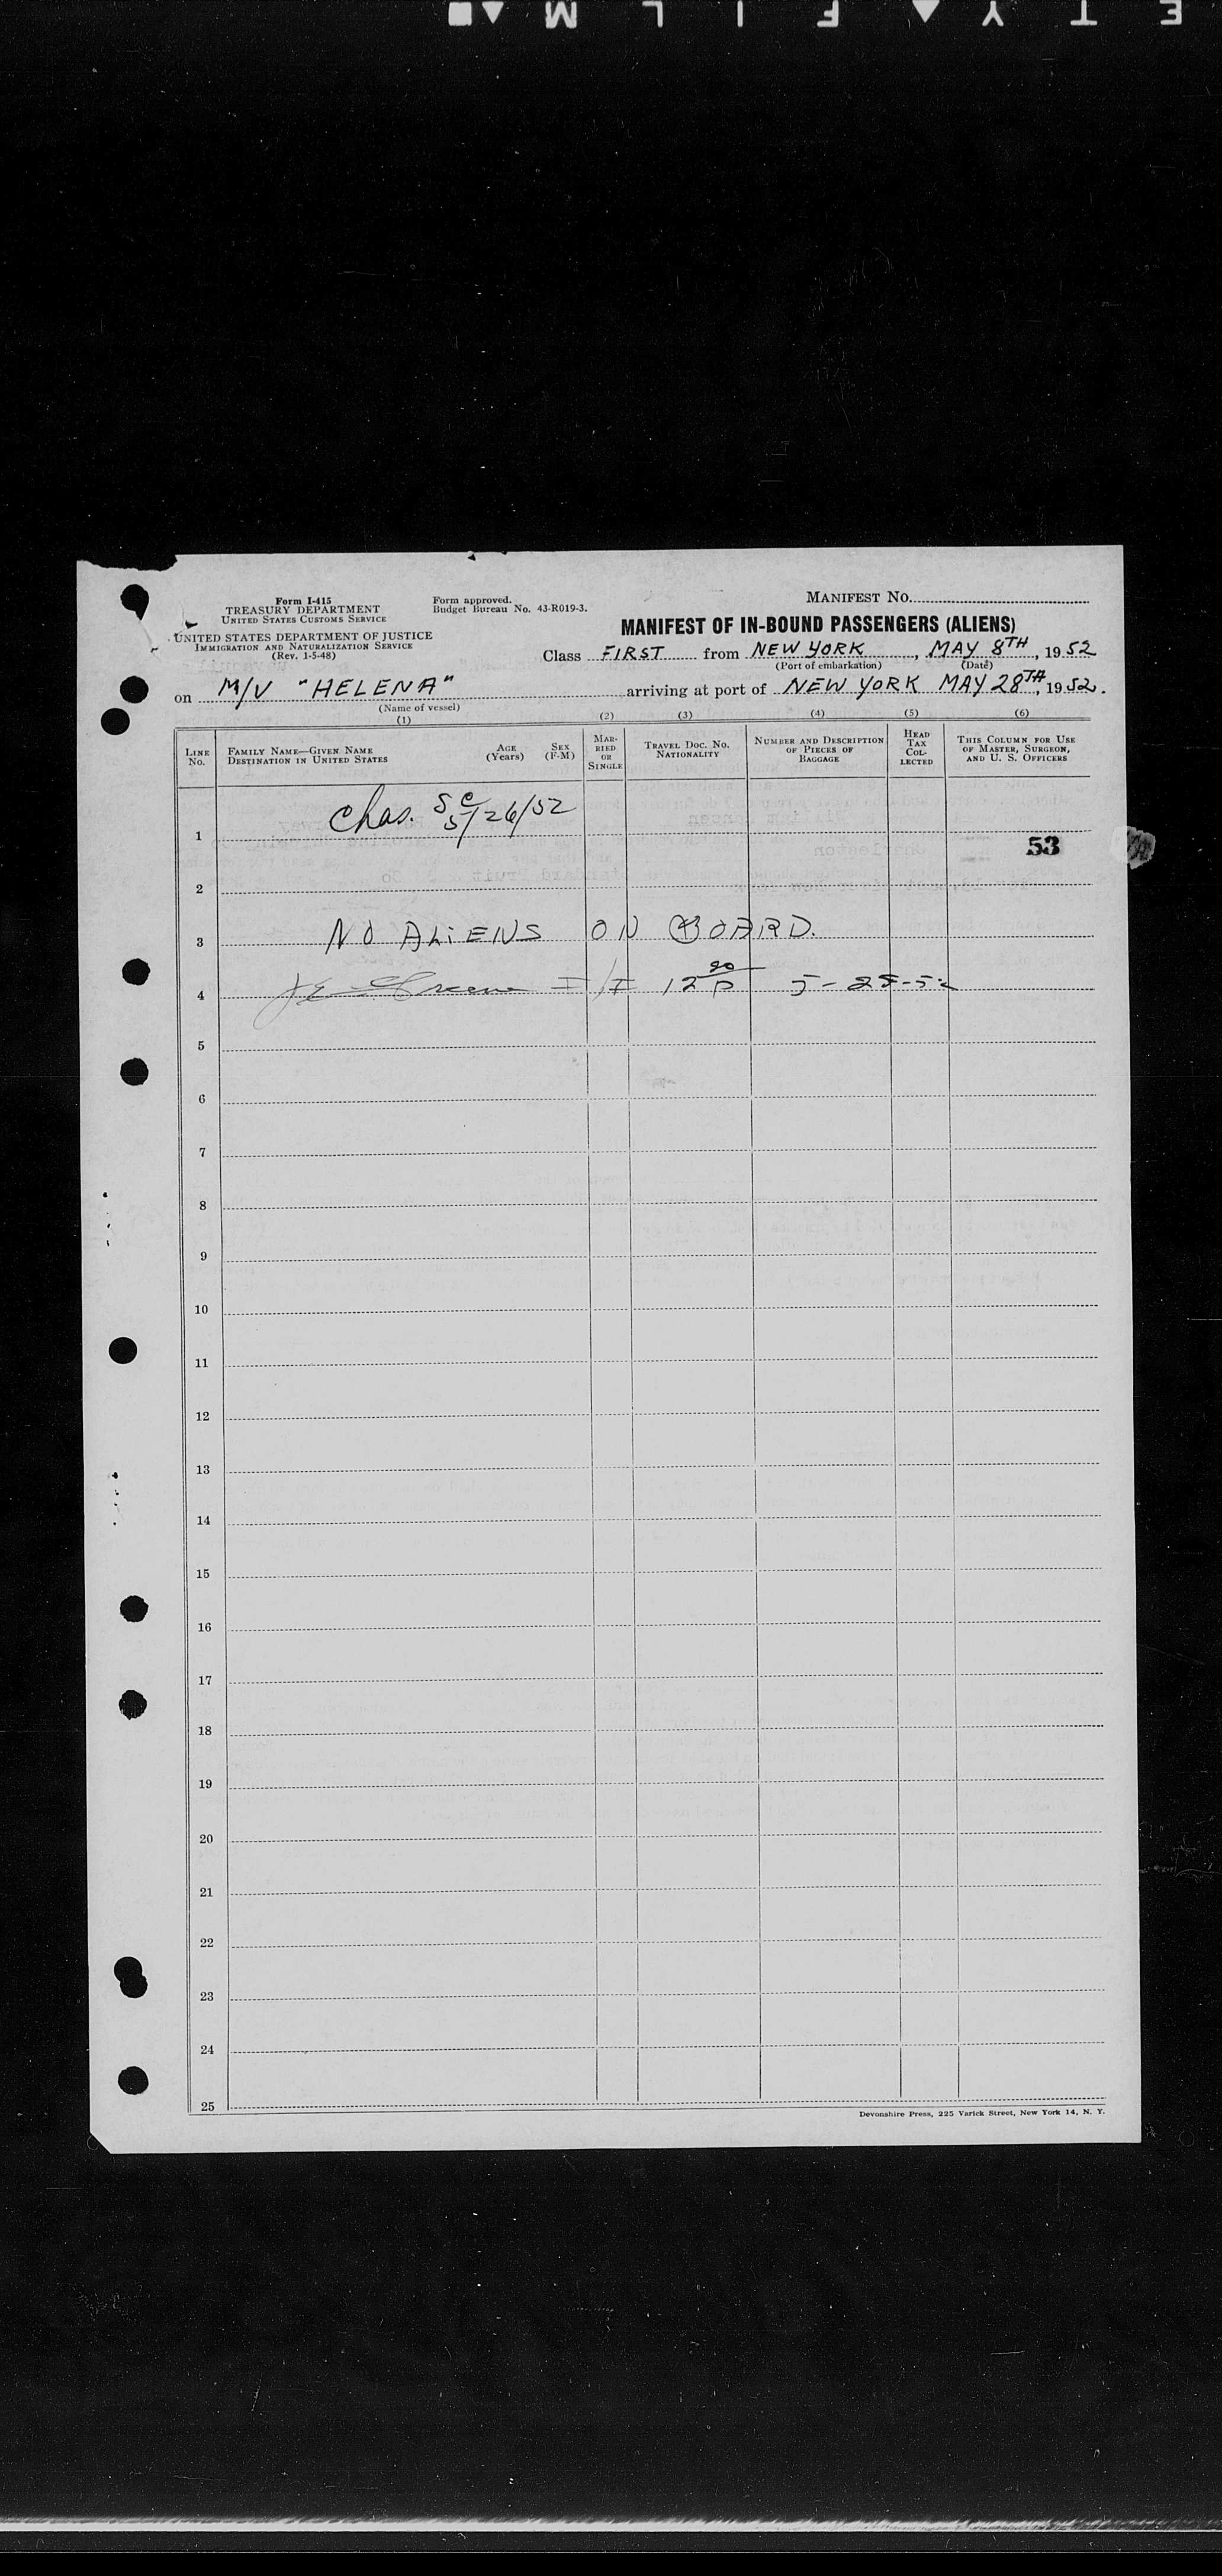 E T Y ▲ F I L M ▲ ■
Form I-415
TREASURY DEPARTMENT
UNITED STATES CUSTOMS SERVICE
UNITED STATES DEPARTMENT OF JUSTICE
IMMIGRATION AND NATURALIZATION SERVICE
(Rev. 1-5-48)
Form approved.
Budget Bureau No. 43-R019-3.
MANIFEST NO.
MANIFEST OF IN-BOUND PASSENGERS (ALIENS)
Class FIRST from NEW YORK, MAY 8TH, 1952
(Port of embarkation) (Date)
on M/V "HELENA" arriving at port of NEW YORK MAY 28TH, 1952.
(Name of vessel)
(1) (2) (3) (4) (5) (6)
LINE NO.
FAMILY NAME—GIVEN NAME
DESTINATION IN UNITED STATES
AGE (Years)
SEX (F-M)
MARRIED OR SINGLE
TRAVEL DOC. NO. NATIONALITY
NUMBER AND DESCRIPTION OF PIECES OF BAGGAGE
HEAD TAX COLLECTED
THIS COLUMN FOR USE OF MASTER, SURGEON, AND U. S. OFFICERS
Chas. S C 5/26/52
1
53
2
3 NO ALIENS ON BOARD.
4 Greene I/I 12 P 5-28-52
5
6
7
8
9
10
11
12
13
14
15
16
17
18
19
20
21
22
23
24
25
Devonshire Press, 225 Varick Street, New York 14, N. Y.